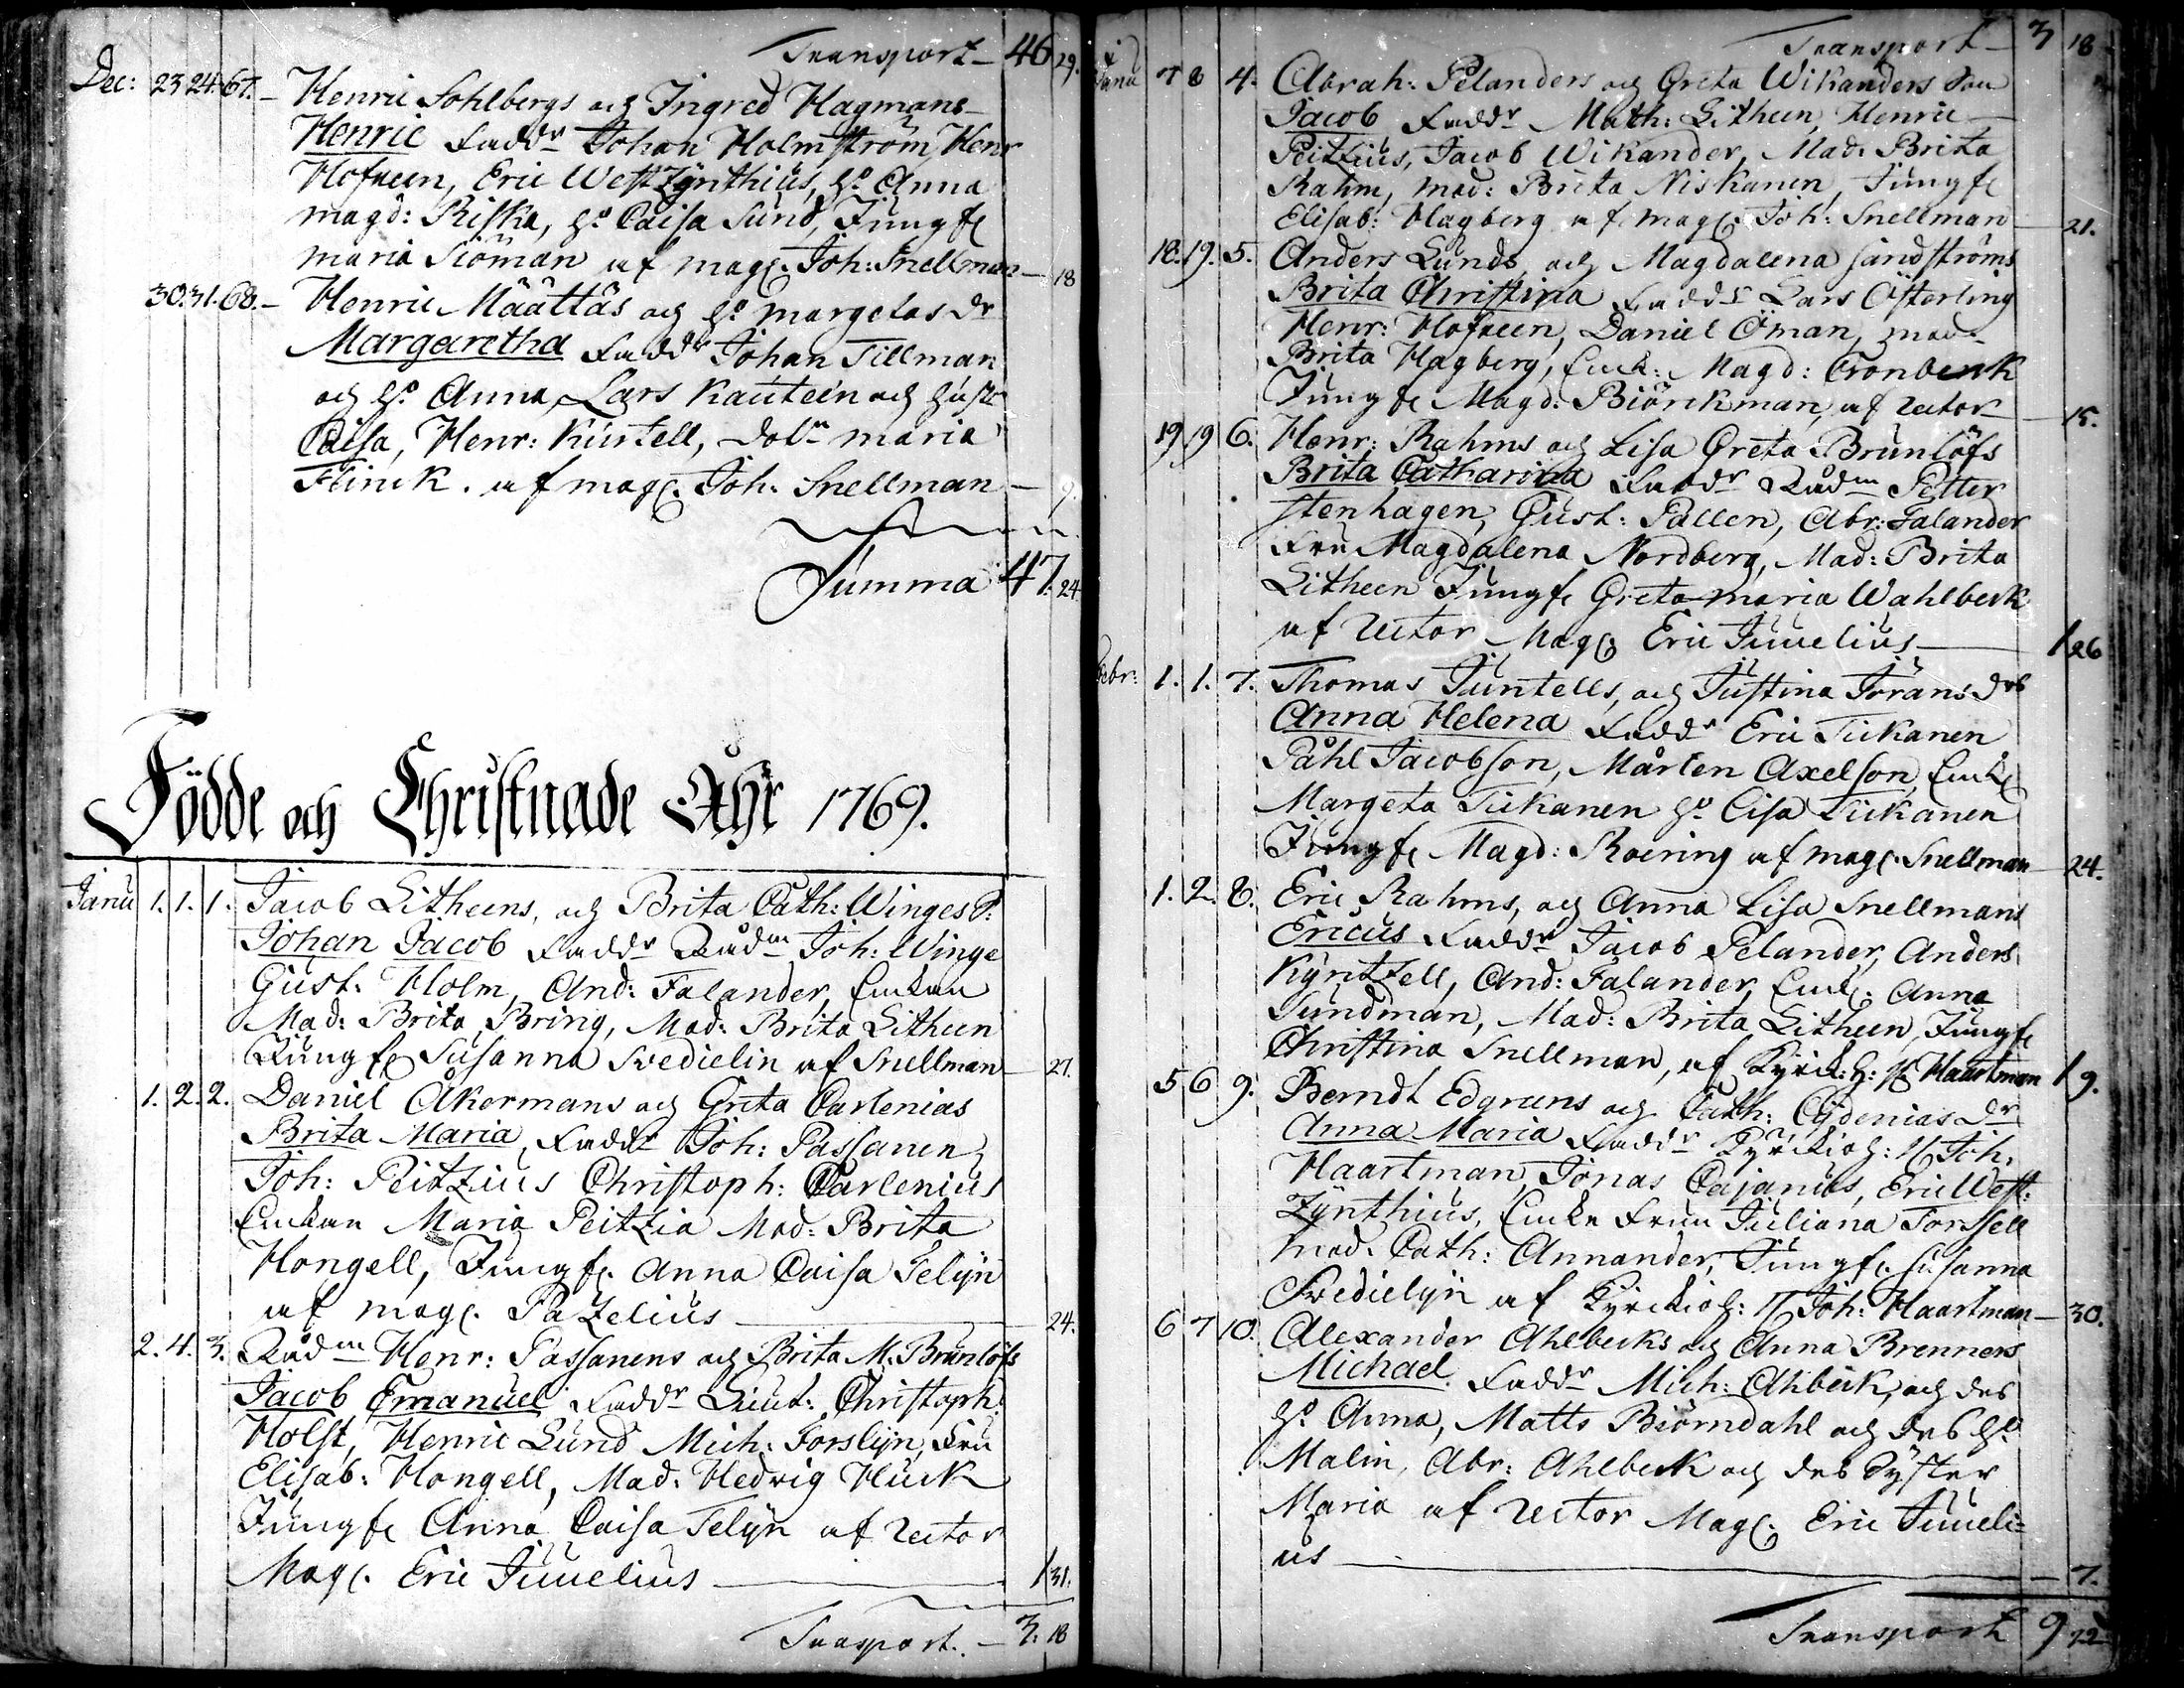 Transport — 46 29.
Dec: 23 24. 67. — Henric Sohlbergs och Ingred Hagmans
Henric Faddr Johan Holmström, Henr
Hofreen, Eric Westzynthius, H:o Anna
magd: Riska, H:o Caisa Sund, Jungfr
maria Siöman af mag. Joh: Snellman — 18
30. 31. 68. — Henric Määttäs och H:o margetas dr
Margaretha Faddr Johan Tillman
och H:o Anna, Lars Kauteen och hustr
Caisa, Henr: Kuntell, maria
Flinck. af mag. Joh. Snellman — 9.
Summa 47. 24.
Födde och Christnade Åhr 1769.
Janu 1. 1. 1. Jacob Litheens, och Brita Cath: Winges S:
Johan Jacob Faddr Rådm Joh: Winge
Gust: Holm, And: Falander, Enckan
Mad: Brita Bring, Mad: Brita Litheen
Jungfr Susanna Svedielin af Snellman — 27.
1. 2. 2. Daniel Åkermans och Greta Carlenias
Brita Maria, Faddr Joh: Passanen,
Joh: Peitzius Christoph: Carlenius
Enckan Maria Peitzia Mad: Brita
Hongell, Jungfr. Anna Caisa Telijn
af mag. Pazelius — 24.
2. 4. 3. Rådm Henr: Passanens och Brita M. Brunlöfs
Jacob Emanuel Faddr Lieut: Christoph:
Holst, Henric Lund Mich: Forslijn, Fru
Elisab: Hongell, Mad. Hedvig Huck
Jungfr Anna Caisa Telijn af rector
Mag. Eric Juuelius — 1 31.
Trasport. — 3. 18
Transport — 3 18
Janu 7 8 4. Abrah: Pelanders och Greta Wikanders Son
Jacob Faddr Math: Litheen, Henric
Peitzius, Jacob Wikander, Mad. Brita
Rahm, mad: Brita Niskanen, Jungfr
Elisab: Hagberg af mag. Joh: Snellman — 21.
18. 19. 5. Anders Lunds och Magdalena Sandströms
Brita Christina Faddr Lars Österling
Henr: Hofreen, Daniel Öman, mad
Brita Hagberg, Enck: Magd: Cronbeck
Jungfr Magd: Biörckman, af rector — 15.
19 19 6. Henr: Rahms och Lisa Greta Brunlöfs
Brita Catharina Faddr Rådm Petter
Stenhagen, Gust: Pallen, Abr: Falander
Fru Magdalena Nordberg, Mad: Brita
Litheen Jungfr Greta maria Wahlbeck
af rector Mag: Eric Juuelius — 1 26
Febr: 1. 1. 7. Thomas Juntells, och Justina Jörans drs
Anna Helena Faddr Eric Tickanen
Påhl Jacobson, Mårten Axelson, Enck
Margeta Tickanen H:o Lisa Tickanen
Jungfr Magd: Roering af mag. Snellman 24.
1. 2. 8. Eric Rahms, och Anna Lisa Snellmans
Ericus Faddr Jacob Pelander, Anders
Kyntzell, And: Falander, Enck. Anna
Sundman, Mad: Brita Litheen, Jungfr
Christina Snellman, af Kyrck:h: H. Haartman 1 9.
5 6 9. Berndt Edgrens och Cath: Chydenias dr
Anna Maria Faddr Kyrckioh: H. Joh.
Haartman, Jonas Cajanus, Eric West:
Zynthius, Encke Frun Juliana Forssell
mad. Cath: Annander, Jungfr. Susanna
Svedielijn af Kyrckioh: H. Joh: Haartman — 30.
6 7 10. Alexander Ahlbecks och Anna Brenners
Michael. Faddr Mich: Ahlbeck, och des
H:o Anna, Matts Biörndahl och des H:o
Malin, Abr: Ahlbeck och des Syster
Maria af rector Mag. Eric Juueli=
us — 7.
Transport 9 22